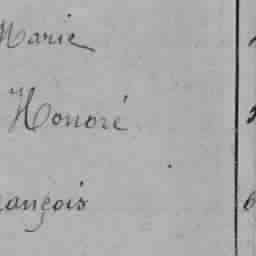 Marie
Honoré
ançois